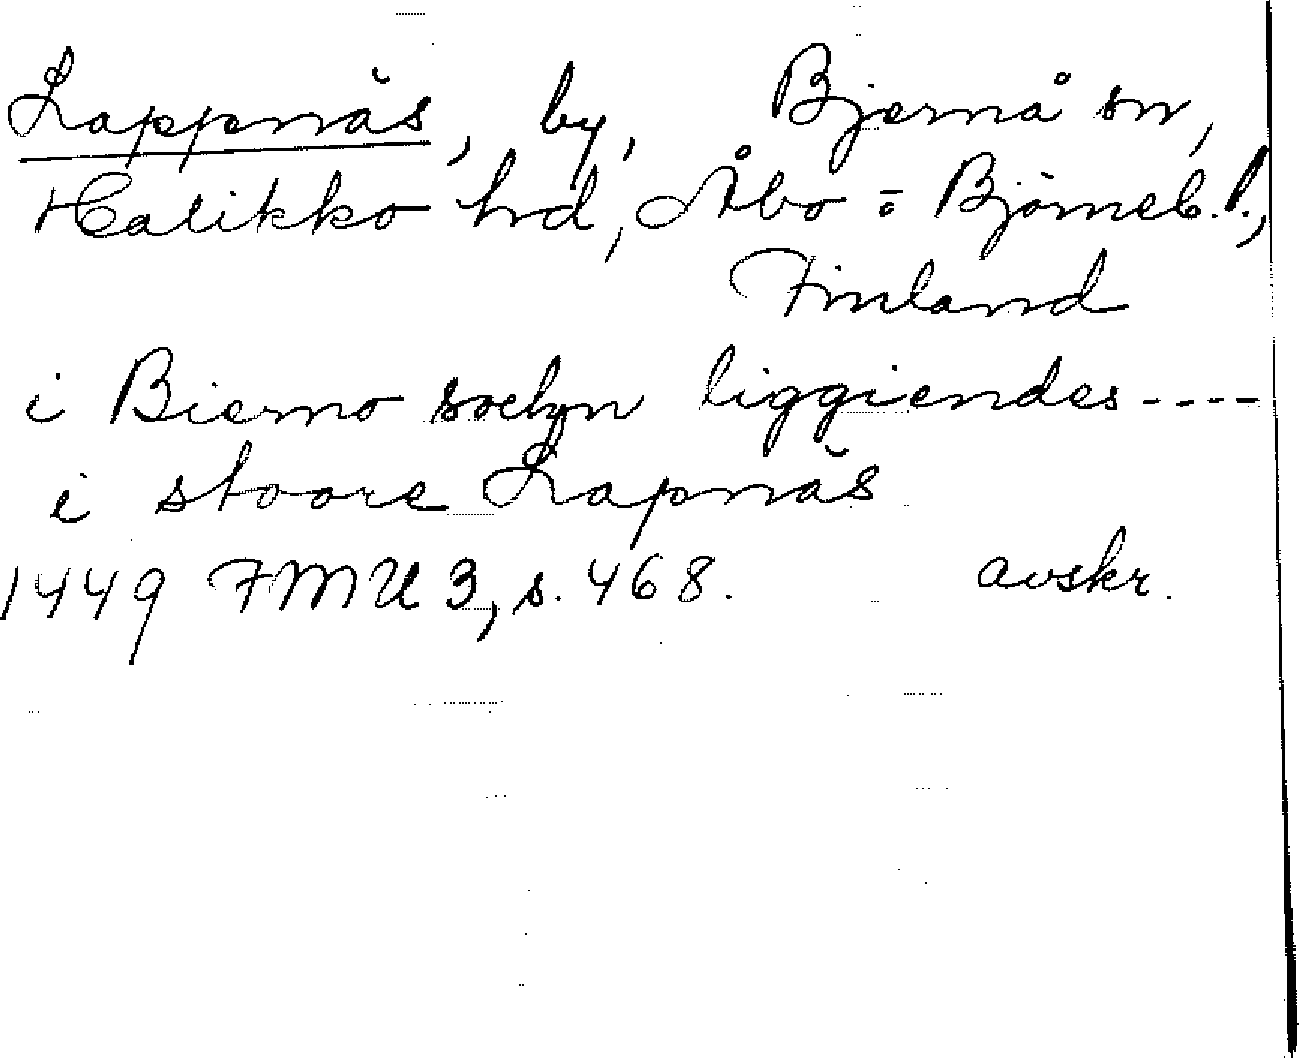 Lappnäs, by, Bjernå sn,
Halikko hrd, Åbo = Björneb. l.,
Finland
i Bierno sochn liggiendes ----
i stoore Lapnäs
1449 FMU 3, s. 468. avskr.